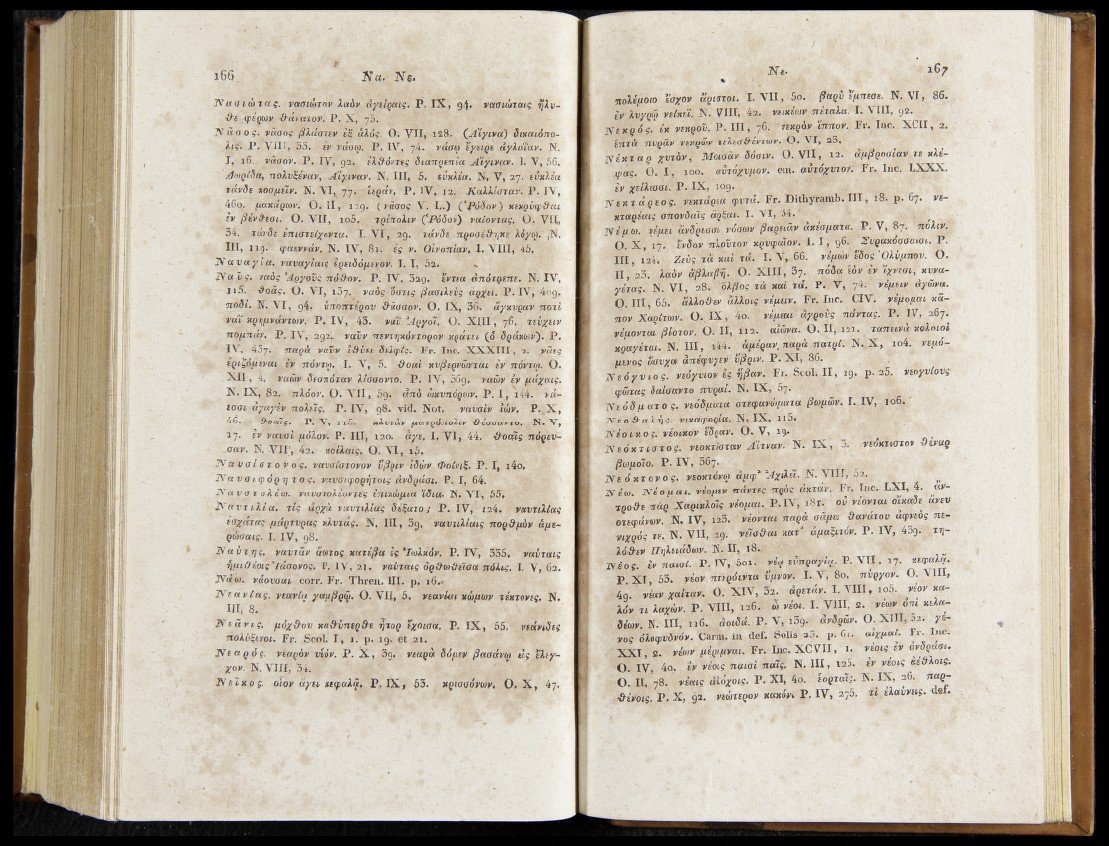 166 Να. Νε.
Νασιώτας. νασιώταν λαὸν ἀγείραις. P. IX, 94. νασιώταις ἤλυ-
θε φέρων θάνατον. P. X, 75.
Νᾶσος. νᾶσος βλάστεν ἐξ ἁλός. O. VII, 128. (Αἴγινα) δικαιόπο-
λις. P. VIII, 33. ἐν νάσῳ. P. IV, 74. νάσῳ ἔγειρε ἀγλαΐαν. N.
I, 16. νᾶσον. P. IV, 92. ἐλθόντες διαπρεπέα Αἴγιναν. I. V, 56.
Δωρίδα, πολυξέναν, Αἴγιναν. N. III, 5. εὐκλέα. N. V, 27. εὐκλέα
τάνδε κοσμεῖν. N. VI, 77. ἱεράν. P. IV, 12. Καλλίσταν. P. IV,
460. μακάρων. O. II, 129. (νᾶσος V. L.) (Ῥόδον) κεκρύφθαι
ἐν βένθεσι. O. VII, 105. τρίπολιν (Ῥόδον) ναίοντας. O. VII,
34. τάνδε ἐπιστείχοντα. I. VI, 29. τάνδε προσέθηκε λόγῳ. N.
III, 119. φαεννάν. N. IV, 81. ἐς ν. Οἰνοπίαν. I. VIII, 45.
Ναυαγία. ναυαγίαις ἐρειδόμενον. I. I, 52.
Ναῦς. ναὸς Ἀργοῦς πόθον. P. IV, 329. ἔντεα ἀπότρεπε. N. IV,
115. θοᾶς. O. VI, 137. ναὸς ὅστις βασιλεὺς ἄρχει. P. IV, 409.
ποδί. N. VI, 94. ὑποπτέρου θᾶσσον. O. IX, 36. ἄγκυραν ποτὶ
ναῒ κρημνάντων. P. IV, 43. ναῒ Ἀργοῖ. O. XIII, 76. τεύχειν
πομπάν. P. IV, 292. ναῦν πεντηκόντορον κράτει (ὁ δράκων). P.
IV, 437. παρὰ ναῦν ἰθύει δελφίς. Fr. Inc. XXXIII, 2. νᾶες
ἐριζόμεναι ἐν πόντῳ. I. V, 5. θοαὶ κυβερνῶνται ἐν πόντῳ. O.
XII, 4. ναῶν δεσπόταν λίσσοντο. P. IV, 369. ναῶν ἐν μάχαις.
N. IX, 82. πλόον. O. VII, 59. ἀπὸ ὠκυπόρων. P. I, 144. νά-
εσσι ἀγαγὲν πολεῖς. P. IV, 98. vid. Not. ναυσὶν ἰών. P. X,
46. θοαῖς. P. V, κλυτὰν ματρόπολιν θέσσαντο. N. V,
17. ἐν ναυσὶ μόλον. P. III, 120. ἄγε. I. VI, 44. θοαῖς πόρευ-
σαν. N. VII, 42. κοίλαις. O. VI, 15.
Ναυσίστονος. ναυσίστονον ὕβριν ἰδὼν Φοίνιξ. P. I, 140.
Ναυσιφόρητος. ναυσιφορήτοις ἀνδράσι. P. I, 64.
Ναυστολέω. ναυστολέοντες ἐπικώμια ἴδια. N. VI, 55.
Ναυτιλία. τίς ἀρχὰ ναυτιλίας δέξατο; P. IV, 124. ναυτιλίας
ἐσχάτας μάρτυρας κλυτάς. N. III, 39. ναυτιλίαις πορθμὸν ἁμε-
ρώσαις. I. IV, 98.
Ναύτης. ναυτᾶν ἄωτος κατέβα ἐς Ἰωλκόν. P. IV, 335. ναύταις
ἡμιθέοις Ἰάσονος. P. IV, 21. ναύταις ὀρθωθεῖσα πόλις. I. V, 62.
Νάω. νάουσαι corr. Fr. Thren. III. p. 16.
Νεανίας. νεανίᾳ γαμβρῷ. O. VII, 5. νεανίαι κώμων τέκτονες. N.
III, 8.
Νεᾶνις. μόχθου καθύπερθε ἦτορ ἔχοισα. P. IX, 55. νεάνιδες
πολύξενοι. Fr. Scol. I, 1. p. 19. et 21.
Νεαρός. νεαρὸν υἱόν. P. X, 39. νεαρὰ δόμεν βασάνῳ εἰς ἔλεγ-
χον. N. VIII, 34.
Νεῖκος. οἷον ἄγει κεφαλᾷ. P. IX, 53. κρισσόνων. O. X, 47.
Νε. 167
πολέμοιο ἔσχον ἄριστοι. I. VII, 50. βαρὺ ἔμπεσε. N. VI, 86.
ἐν λυγρῷ νείκεϊ. N. VIII, 42. νεικέων πέταλα. I. VIII, 92.
Νεκρός. ἐκ νεκροῦ. P. III, 76. νεκρὸν ἵππον. Fr. Inc. XCII, 2.
ἑπτὰ πυρᾶν νεκρῶν τελεσθέντων. O. VI, 23.
Νέκταρ χυτὸν, Μοισᾶν δόσιν. O. VII, 12. ἀμβροσίαν τε κλέ-
ψας. O. I, 100. αὐτόχυμον. em. αὐτόχυτον. Fr. Inc. LXXX.
ἐν χείλεσσι. P. IX, 109.
Νεκτάρεος. νεκτάρεα φυτά. Fr. Dithyramb. III, 18. p. 67. νε-
κταρέαις σπονδαῖς ἄρξαι. I. VI, 54.
Νέμω. νέμει ἄνδρεσσι νόσων βαρειᾶν ἀκέσματα. P. V, 87. πόλιν.
O. X, 17. ἔνδον πλοῦτον κρυφαῖον. I. I, 96. Συρακόσσαισι. P.
III, 124. Ζεὺς τὰ καὶ τά. I. V, 66. νέμων ἕδος Ὀλύμπου. O.
II, 23. λαὸν ἀβλαβῆ. O. XIII, 37. πόδα ἑὸν ἐν ἴχνεσι, κυνα-
γέτας. N. VI, 28. ὄλβος τὰ καὶ τά. P. V, 74. νέμειν ἀγῶνα.
O. III, 65. ἄλλοθεν ἄλλοις νέμειν. Fr. Inc. CIV. νέμομαι κᾶ-
πον Χαρίτων. O. IX, 40. νέμεαι ἀγροὺς πάντας. P. IV, 267.
νέμονται βίοτον. O. II, 112. αἰῶνα. O. II, 121. ταπεινὰ κολοιοὶ
κραγέται. N. III, 144. ἀμέραν παρὰ πατρί. N. X, 104. νεμό-
μενος ἅσυχα ἀπέφυγεν ὕβριν. P. XI, 86.
Νεόγυιος. νεόγυιον ἐς ἥβαν. Fr. Scol. II, 19. p. 25. νεογυίους
φῶτας δαίσαντο πυραί. N. IX, 57.
Νεόδματος. νεόδματα στεφανώματα βωμῶν. I. IV, 106.
Νεοθαλής. νικαφορία. N. IX, 115.
Νέοικος. νέοικον ἕδραν. O. V, 19.
Νεόκτιστος. νεοκτίσταν Αἴτναν. N. IX, 3. νεόκτιστον θέναρ
βωμοῖο. P. IV, 367.
Νεόκτονος. νεοκτόνῳ ἀμφ' Ἀχιλεῖ. N. VIII, 52.
Νέω. Νέομαι. νέομεν πάντες πρὸς ἀκτάν. Fr. Inc. LXI, 4. ἄν-
τροθε πὰρ Χαρικλοῖς νέομαι. P. IV, 181. οὐ νέονται οἴκαδε ἄνευ
στεφάνων. N. IV, 123. νέονται παρὰ σᾶμα θανάτου ἀφνεὸς πε-
νιχρός τε. N. VII, 29. νεῖσθαι κατ' ἀμαξιτόν. P. IV, 439. τη-
λόθεν Πηλειάδων. N. II, 18.
Νέος. ἐν παισί. P. IV, 501. νέᾳ εὐπραγίᾳ. P. VII, 17. κεφαλᾷ.
P. XI, 53. νέον πτερόεντα ὕμνον. I. V, 80. πύργον. O. VIII,
49. νέαν χαίταν. O. XIV, 32. ἀρετάν. I. VIII, 105. νέον κα-
λόν τι λαχών. P. VIII, 126. ὦ νέοι. I. VIII, 2. νέων ὀπὶ κελα-
δέων. N. III, 116. ἀοιδά. P. V, 139. ἀνδρῶν. O. XIII, 52. γέ-
νος ὀλοφυδνόν. Carm. in def. Solis 23. p. 61. αἰχμαί. Fr. Inc.
XXI, 2. νέων μέριμναι. Fr. Inc. XCVII, 1. νέοις ἐν ἀνδράσι.
O. IV, 40. ἐν νέοις παισὶ παῖς. N. III, 125. ἐν νέοις ἀέθλοις.
O. II, 78. νέαις ἀλόχοις. P. XI, 40. ἑορταῖς. N. IX, 26. παρ-
θένοις. P. X, 92. νεώτερον κακόν. P. IV, 275. τί ἐλαύνεις. def.